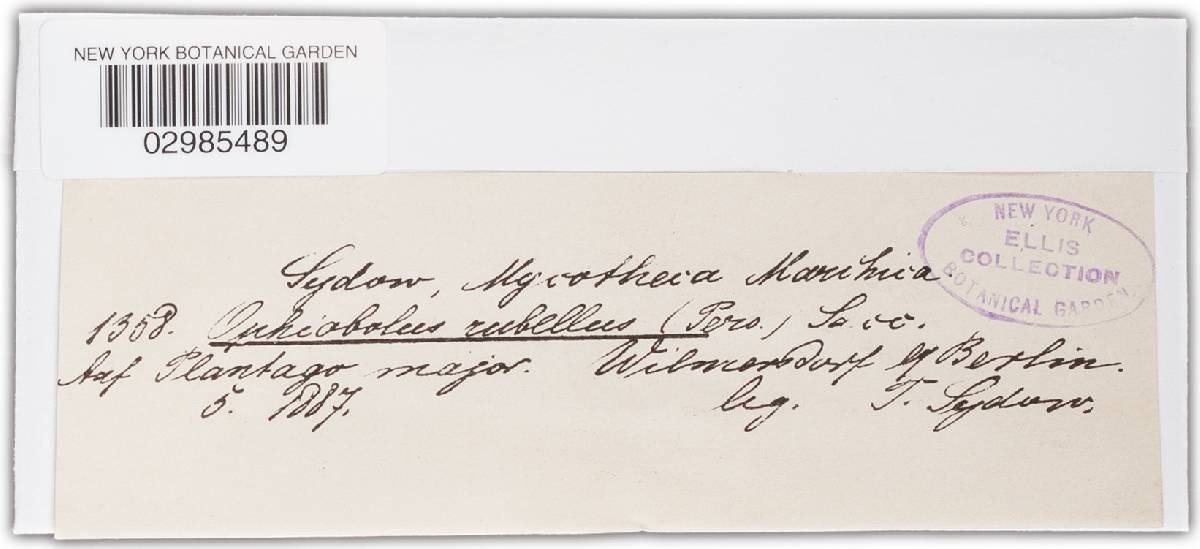 NEW YORK BOTANICAL GARDEN
02985489
NEW YORK
ELLIS
COLLECTION
BOTANICAL GARDEN.
Sydow, Mycotheca Marchica.
1358. Ophiobolus rubellus (Pers.) Sacc.
Auf Plantago major. Wilmersdorf b/Berlin.
5. 1887. leg. P. Sydow.